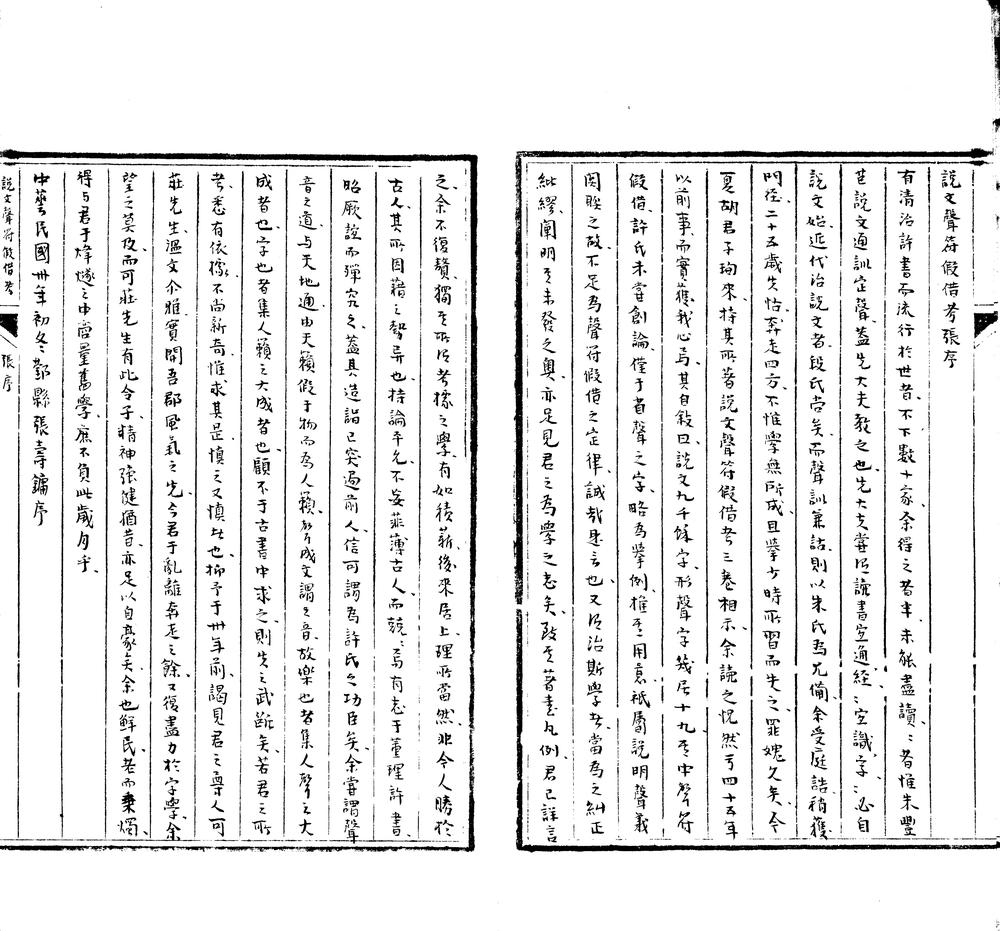 說文聲符假借考張序
有清治許書而流行於世者、不下數十家、余得之者半、未能盡讀、:者惟朱豐
芑說文通訓定聲、蓋先大夫教之也、先大夫嘗㠯讀書宜通經、:宜識字、:必自
說文始、近代治說文者、段氏尚矣、而聲訓兼詁、則以朱氏為尤備、余受庭誥、稍獲
門徑、二十五歲失怙、奔走四方、不惟學無所成、且擧少時所習而失之、罪媿久矣、今
夏胡君子珣來、持其所著說文聲符假借考三卷相示、余讀之怳然、亏四十五年
以前事、而實獲我心焉、其自敍曰、說文九千餘字、形聲字幾居十九、其中聲符
假借、許氏未嘗創論、僅于省聲之字、略為擧例、推其用意、祗屬說明聲義
閡睽之故、不足為聲符假借之定律、誠哉是言也、又㠯治斯學者、當為之糾正
紕繆、闡明其未發之奥、亦足見君之為學之志矣、啟其著書凡例、君已詳言
之、余不復贅、獨其所㠯考據之學、有如積薪、後來居上、理所當然、非今人勝於
古人、其所因藉之勢异也、持論平允、不妄菲薄古人、而兢:焉有志于董理許書、
昭厥誼而殫究之、蓋其造詣已突過前人、信可謂為許氏之功臣矣、余嘗謂聲
音之道、与天地通、由天籟假于物而為人籟、聲成文謂之音、故樂也者、集人聲之大
成者也、字也者、集人籟之大成者也、顧不于古書中求之、則失之武斷矣、若君之所
考、悉有依據、不尚新奇、惟求其是、慎之又慎者也、抑予于卅年前、謁見君之尊人可
莊先生、溫文介雅、實開吾郡風氣之先、今君于亂離奔走之餘、又復盡力於字學、余
望之莫及、而可莊先生有此令子、精神強健猶昔、亦足以自豪矣、余也鮮民、老而秉燭、
得与君于烽燧之中、啇量舊學、庶不負此歲月乎、
中華民國卅年初冬、鄞縣張壽鏞序
說文聲符假借考
張序